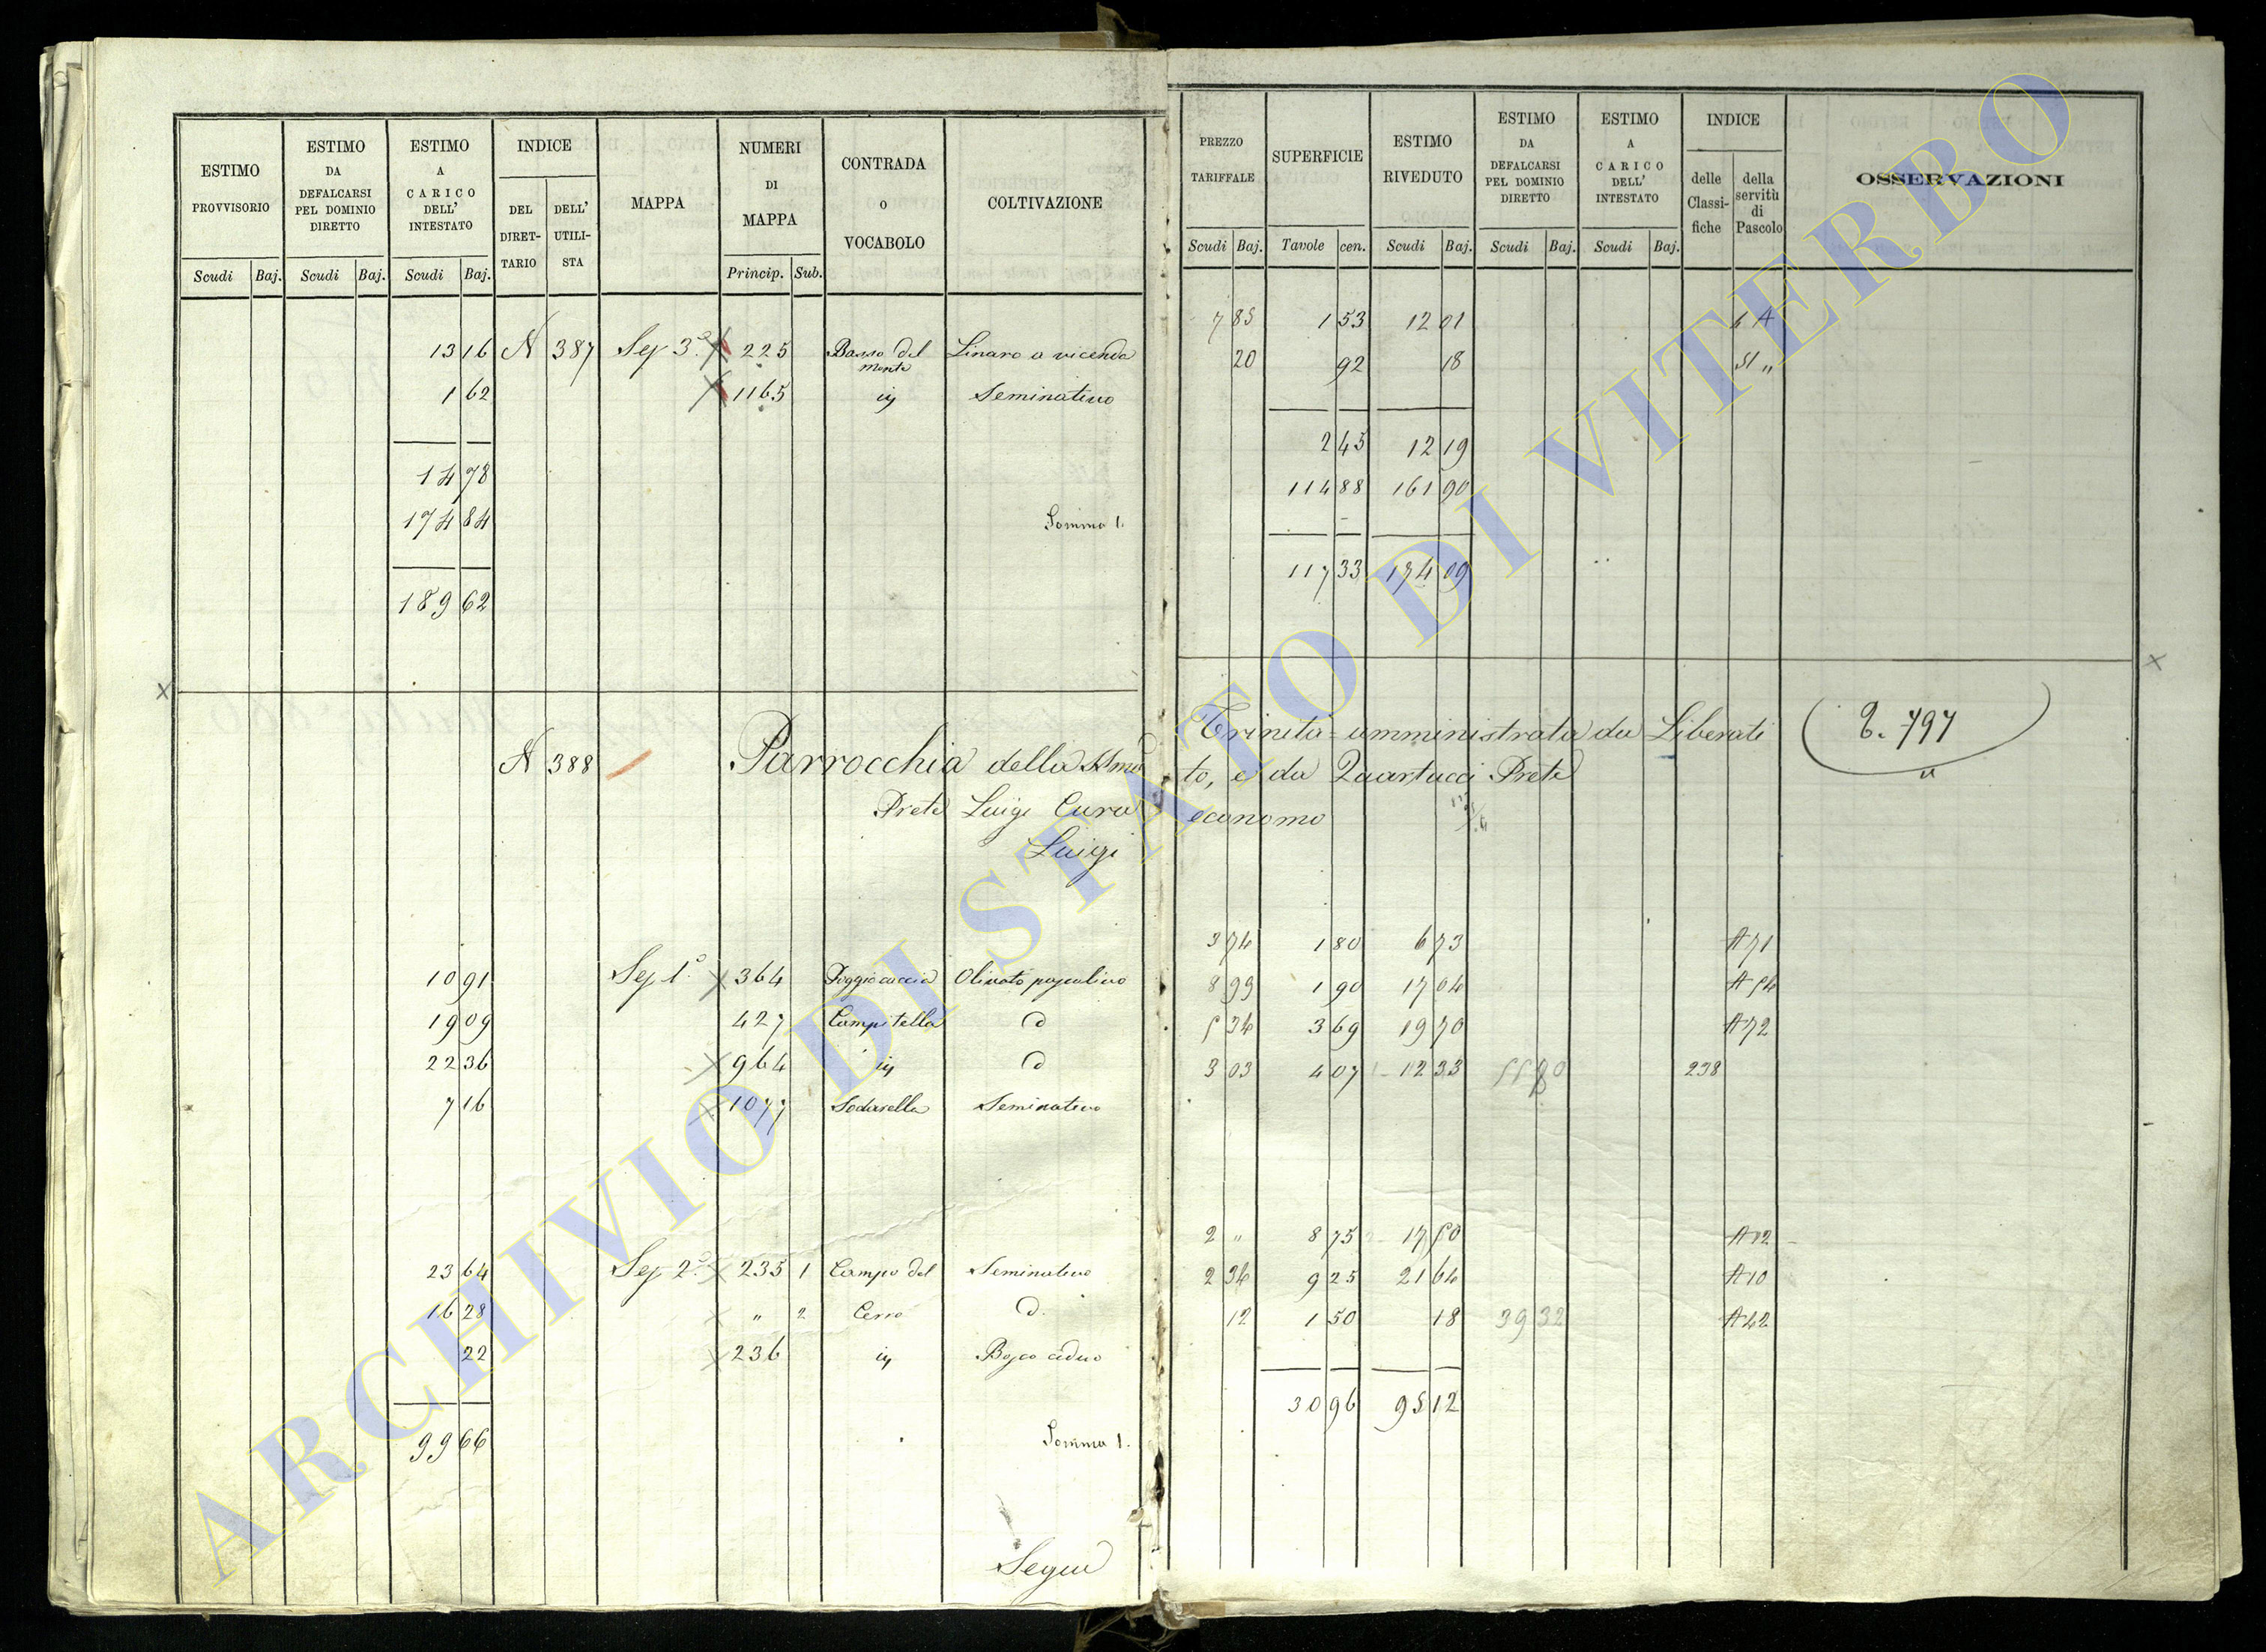 ESTIMO PROVVISORIO
ESTIMO DA DEFALCARSI PEL DOMINIO DIRETTO
ESTIMO A CARICO DELL' INTESTATO
INDICE
DEL DIRET- TARIO
DELL' UTILI- STA
MAPPA
NUMERI DI MAPPA
CONTRADA O VOCABOLO
COLTIVAZIONE
Scudi Baj. Scudi Baj. Scudi Baj. Princip. Sub.
13 16 N 387 Sez 3.a 225 Basso del Monte Linaro a vicenda
1 62 1165 iy Seminativo
14 78
174 84 Somma 1.
189 62
N 388 Parrocchia della SSma
Prete Luigi Cura
Luigi
10 91 Sez 1.a 364 Poggio caccia Olivato pascolivo
19 09 427 Campitella d
22 36 964 iy d
7 16 1077 Sodarella Seminativo
23 64 Sez 2.a 235 1 Campo del Seminativo
16 28 " 2 Cerro d.
22 236 iy Bosco ceduo
99 66 Somma 1.
Segue
PREZZO TARIFFALE
SUPERFICIE
ESTIMO RIVEDUTO
ESTIMO DA DEFALCARSI PEL DOMINIO DIRETTO
ESTIMO A CARICO DELL' INTESTATO
INDICE
delle Classi- fiche
della servitù di Pascolo
OSSERVAZIONI
Scudi Baj. Tavole cen. Scudi Baj. Scudi Baj. Scudi Baj.
7 85 1 53 12 01
20 92 18
2 45 12 19
114 88 161 90
117 33 174 09
Trinità amministrata da Liberati
to, e da Quartucci Prete
economo
797
3 74 1 80 6 73 A 71
8 99 1 90 17 04 A 54
5 34 3 69 19 70 A 72
3 03 4 07 12 33 55 80 238
2 " 8 75 17 50 A 12
2 34 9 25 21 64 A 10
12 1 50 18 39 32 A 42
30 96 95 12
ARCHIVIO DI STATO DI VITERBO